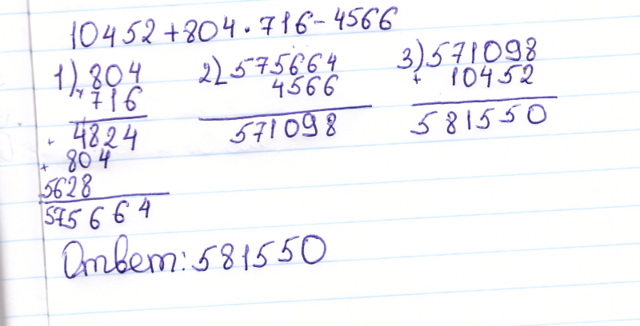 10452+804·716-4566
1) 804 2) 575664 3) 571098
× 716 - 4566 + 10452
+ 4824 571098 581550
+ 804
5628
575664
Ответ: 581550